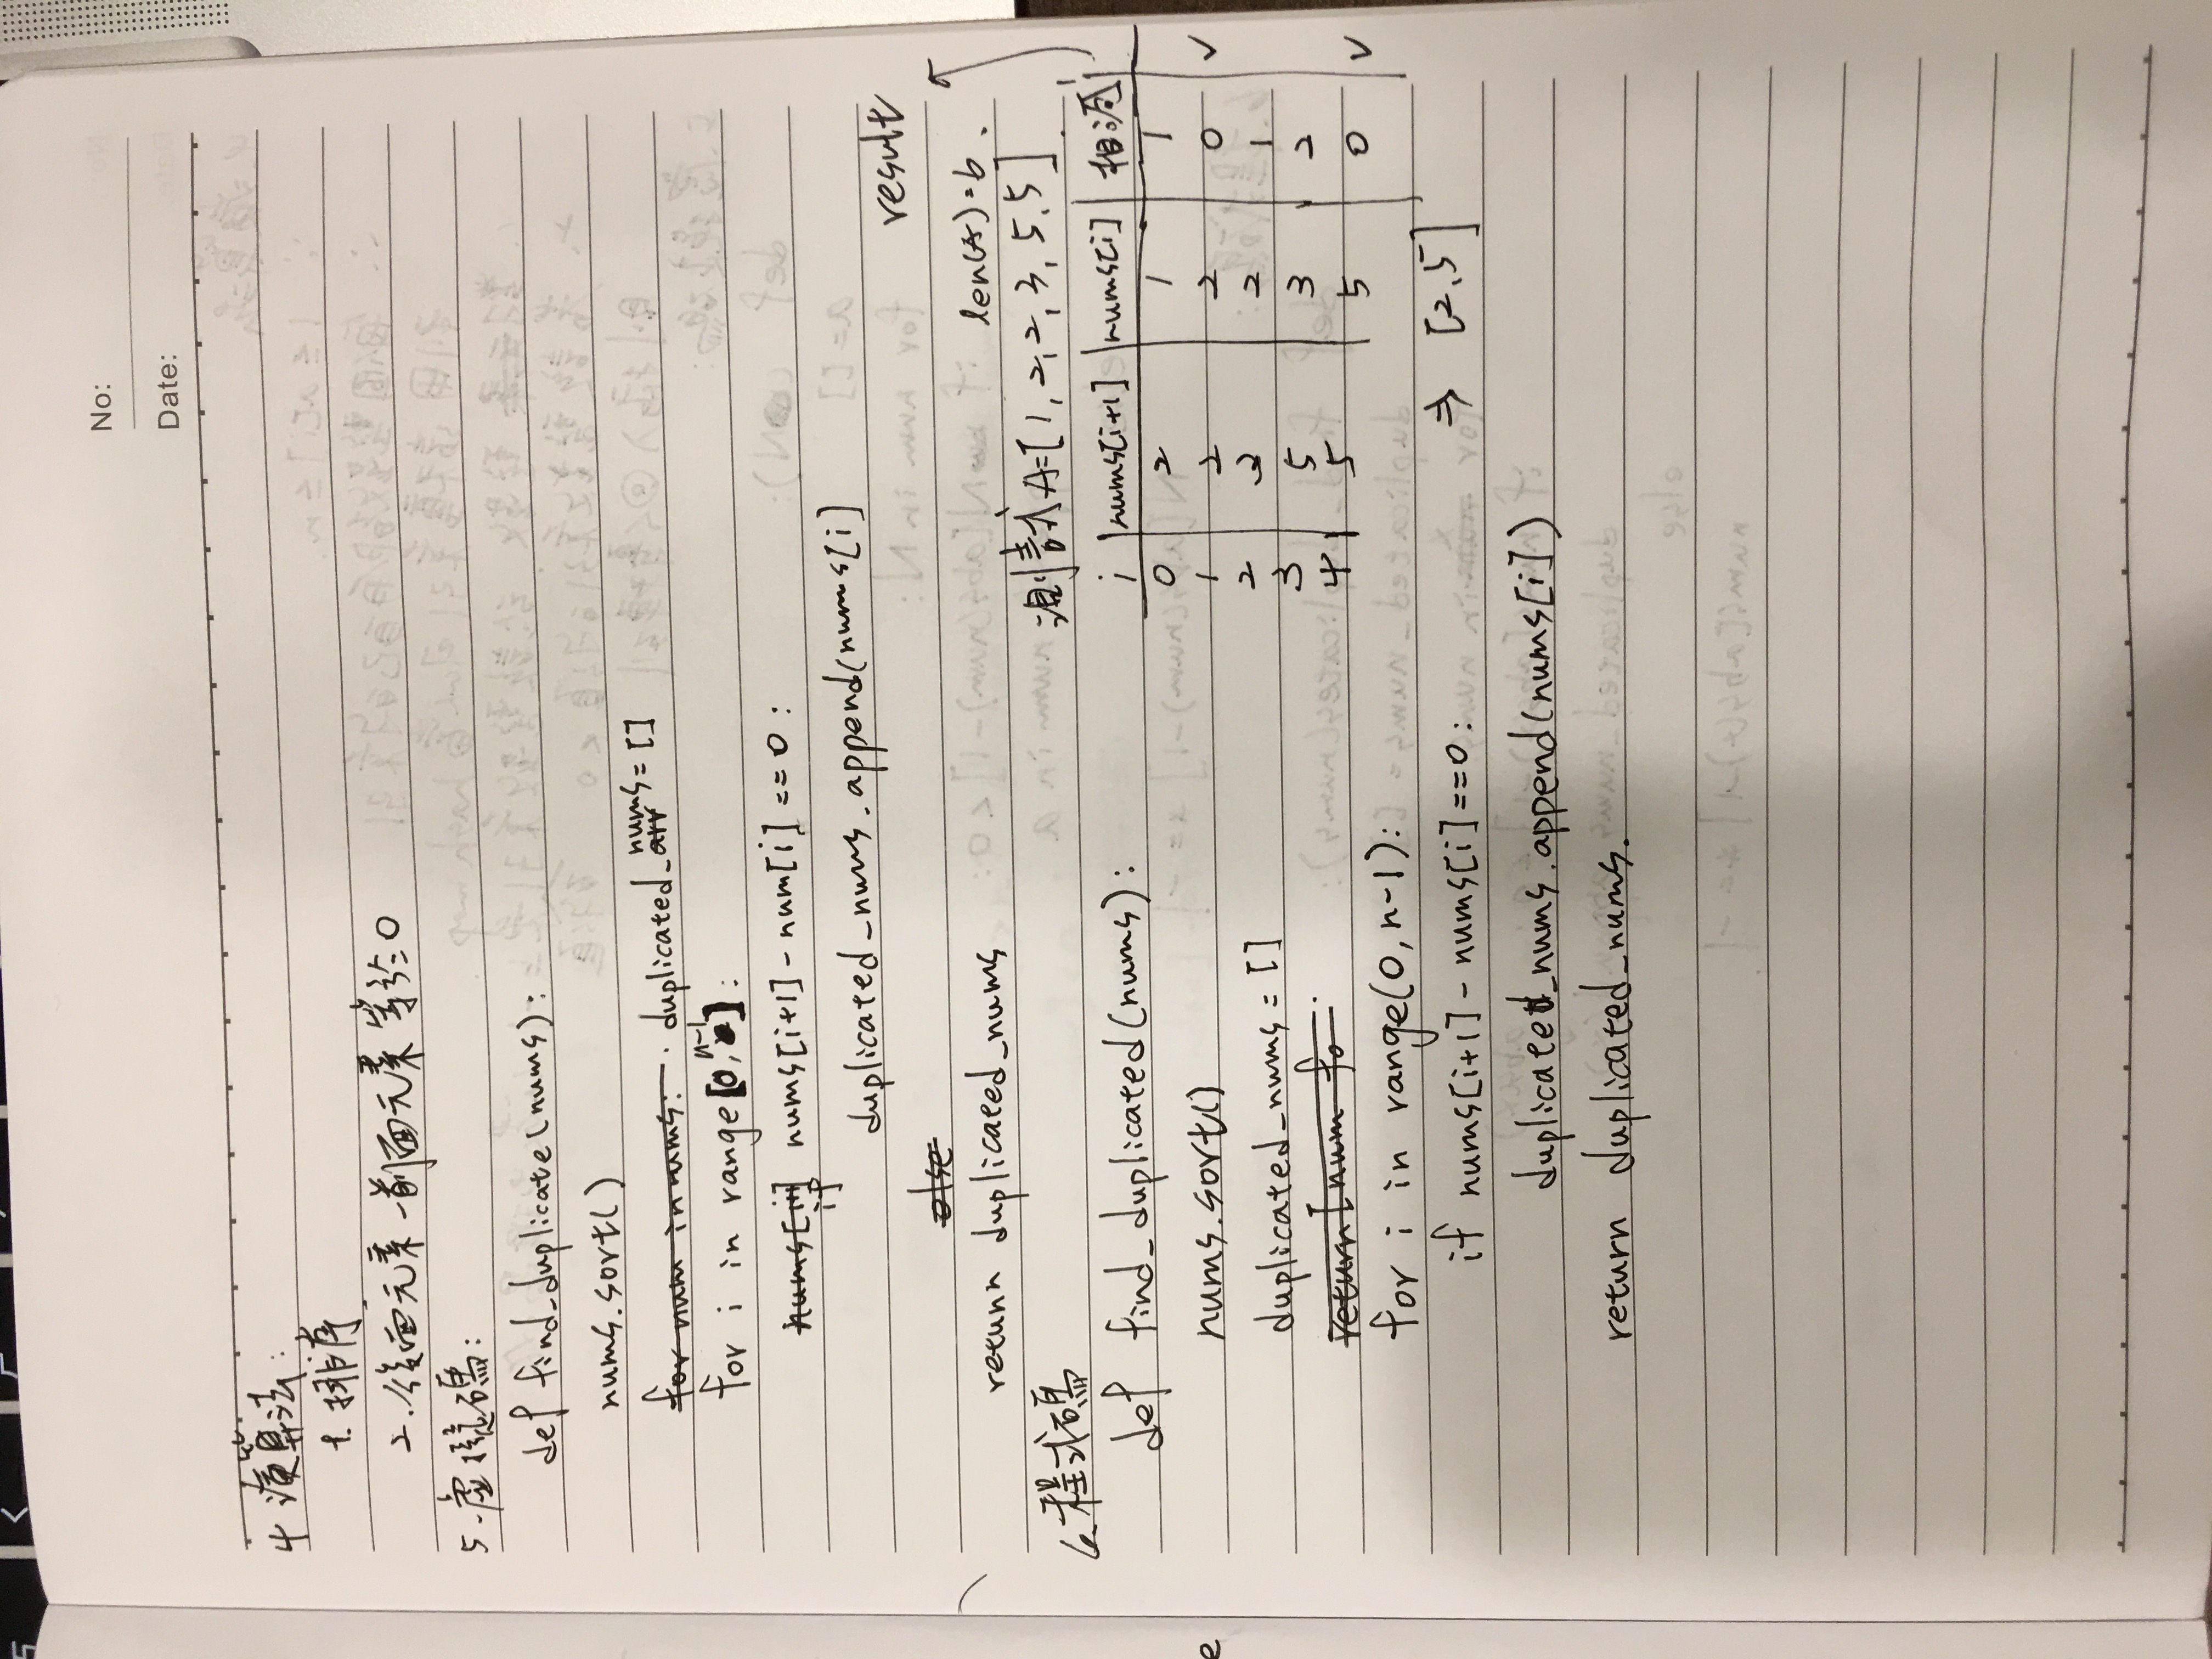 No:
Date:
4 演算法:
1. 排序
2. 後面元素 - 前面元素 等於 0
5. 虛擬碼:
def find_duplicate(nums):
nums.sort()
for num in nums: duplicated_arr nums = []
for i in range[0, n-1]:
nums[i+1] if nums[i+1] - num[i] == 0:
duplicated_nums.append(nums[i]
else
return duplicated_nums
result
len(A) = 6.
測試 A=[1, 2, 2, 3, 5, 5]
6. 程式碼
def find_duplicated(nums):
nums.sort()
duplicated_nums = []
return [num fo
for i in range(0, n-1):
if nums[i+1] - nums[i] == 0:
duplicated_nums.append(nums[i])
return duplicated_nums.
i nums[i+1] nums[i] 相減
0 2 1 1
1 2 2 0 ✓
2 3 2 1
3 5 3 2
4 5 5 0 ✓
⇒ [2, 5]